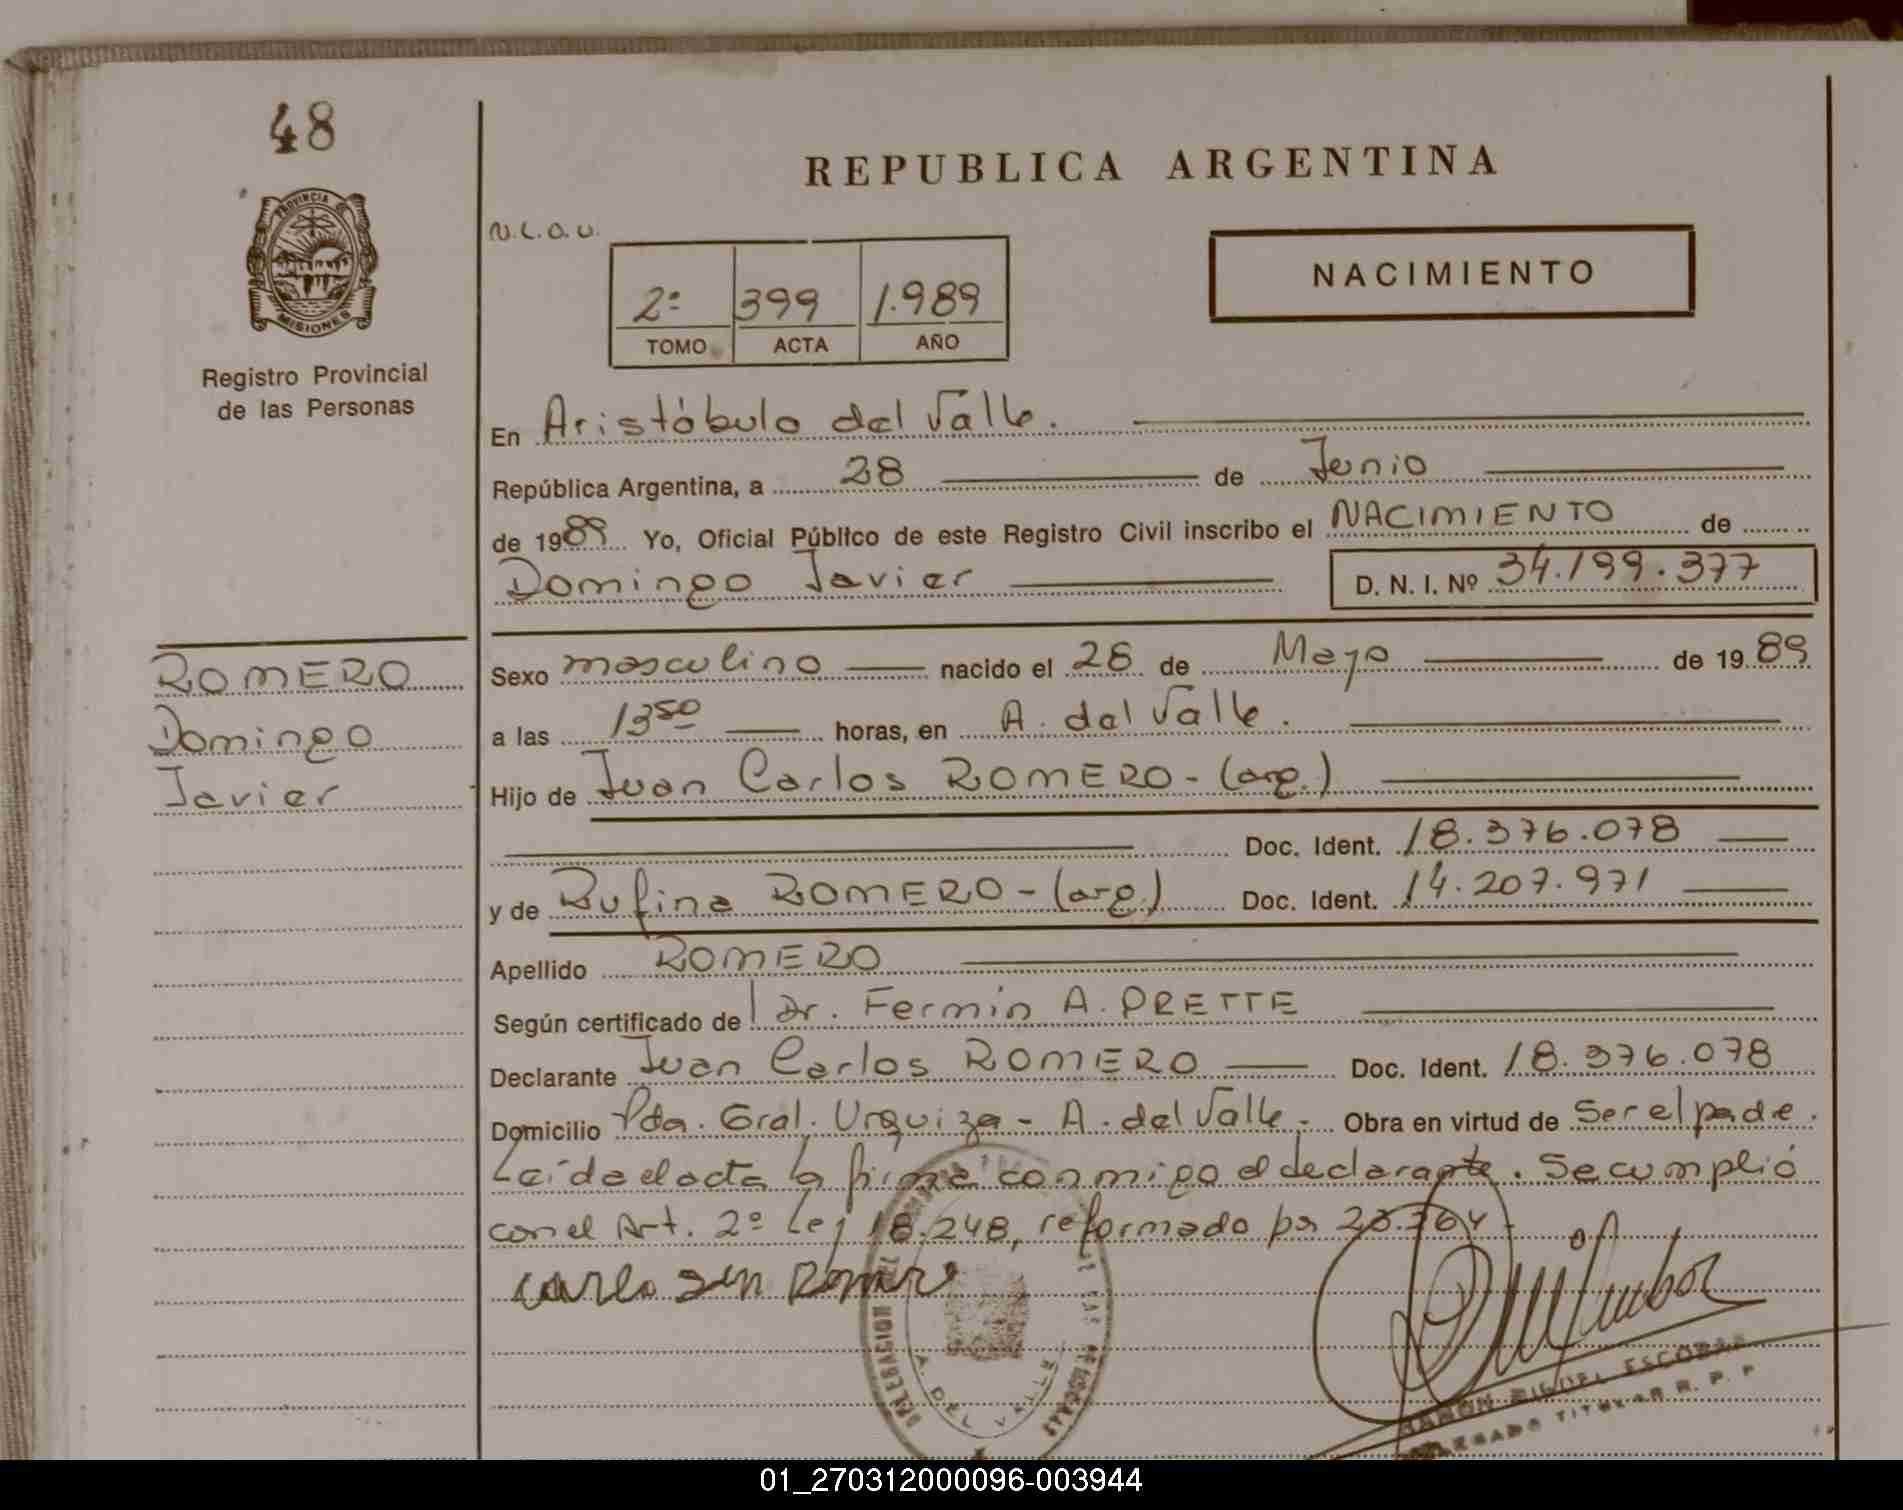 48
PROVINCIA DE
MISIONES
Registro Provincial
de las Personas
REPUBLICA ARGENTINA
N.L.O.U.
NACIMIENTO
2º 399 1.989
TOMO ACTA AÑO
En Aristóbulo del Valle.
República Argentina, a 28 de Junio
de 1989 Yo, Oficial Público de este Registro Civil inscribo el NACIMIENTO de
Domingo Javier D. N. I. Nº 34.199.377
ROMERO
Domingo
Javier
Sexo masculino nacido el 28 de Mayo de 1989
a las 13 50 horas, en A. del Valle.
Hijo de Juan Carlos ROMERO - (arg.)
Doc. Ident. 18.376.078
y de Rufina ROMERO - (arg.) Doc. Ident. 14.207.971
Apellido ROMERO
Según certificado del Dr. Fermín A. PRETTE
Declarante Juan Carlos ROMERO Doc. Ident. 18.376.078
Domicilio Pda. Gral. Urquiza - A. del Valle - Obra en virtud de Ser el padre.
Leída el acta la firma conmigo el declarante. Se cumplió
con el Art. 2º Ley 18.248, reformado por 23.264.
DELEGACION
A. DEL VALLE
RAMON MIGUEL ESCOBAR
DELEGADO TITULAR R. P. P.
01_270312000096-003944